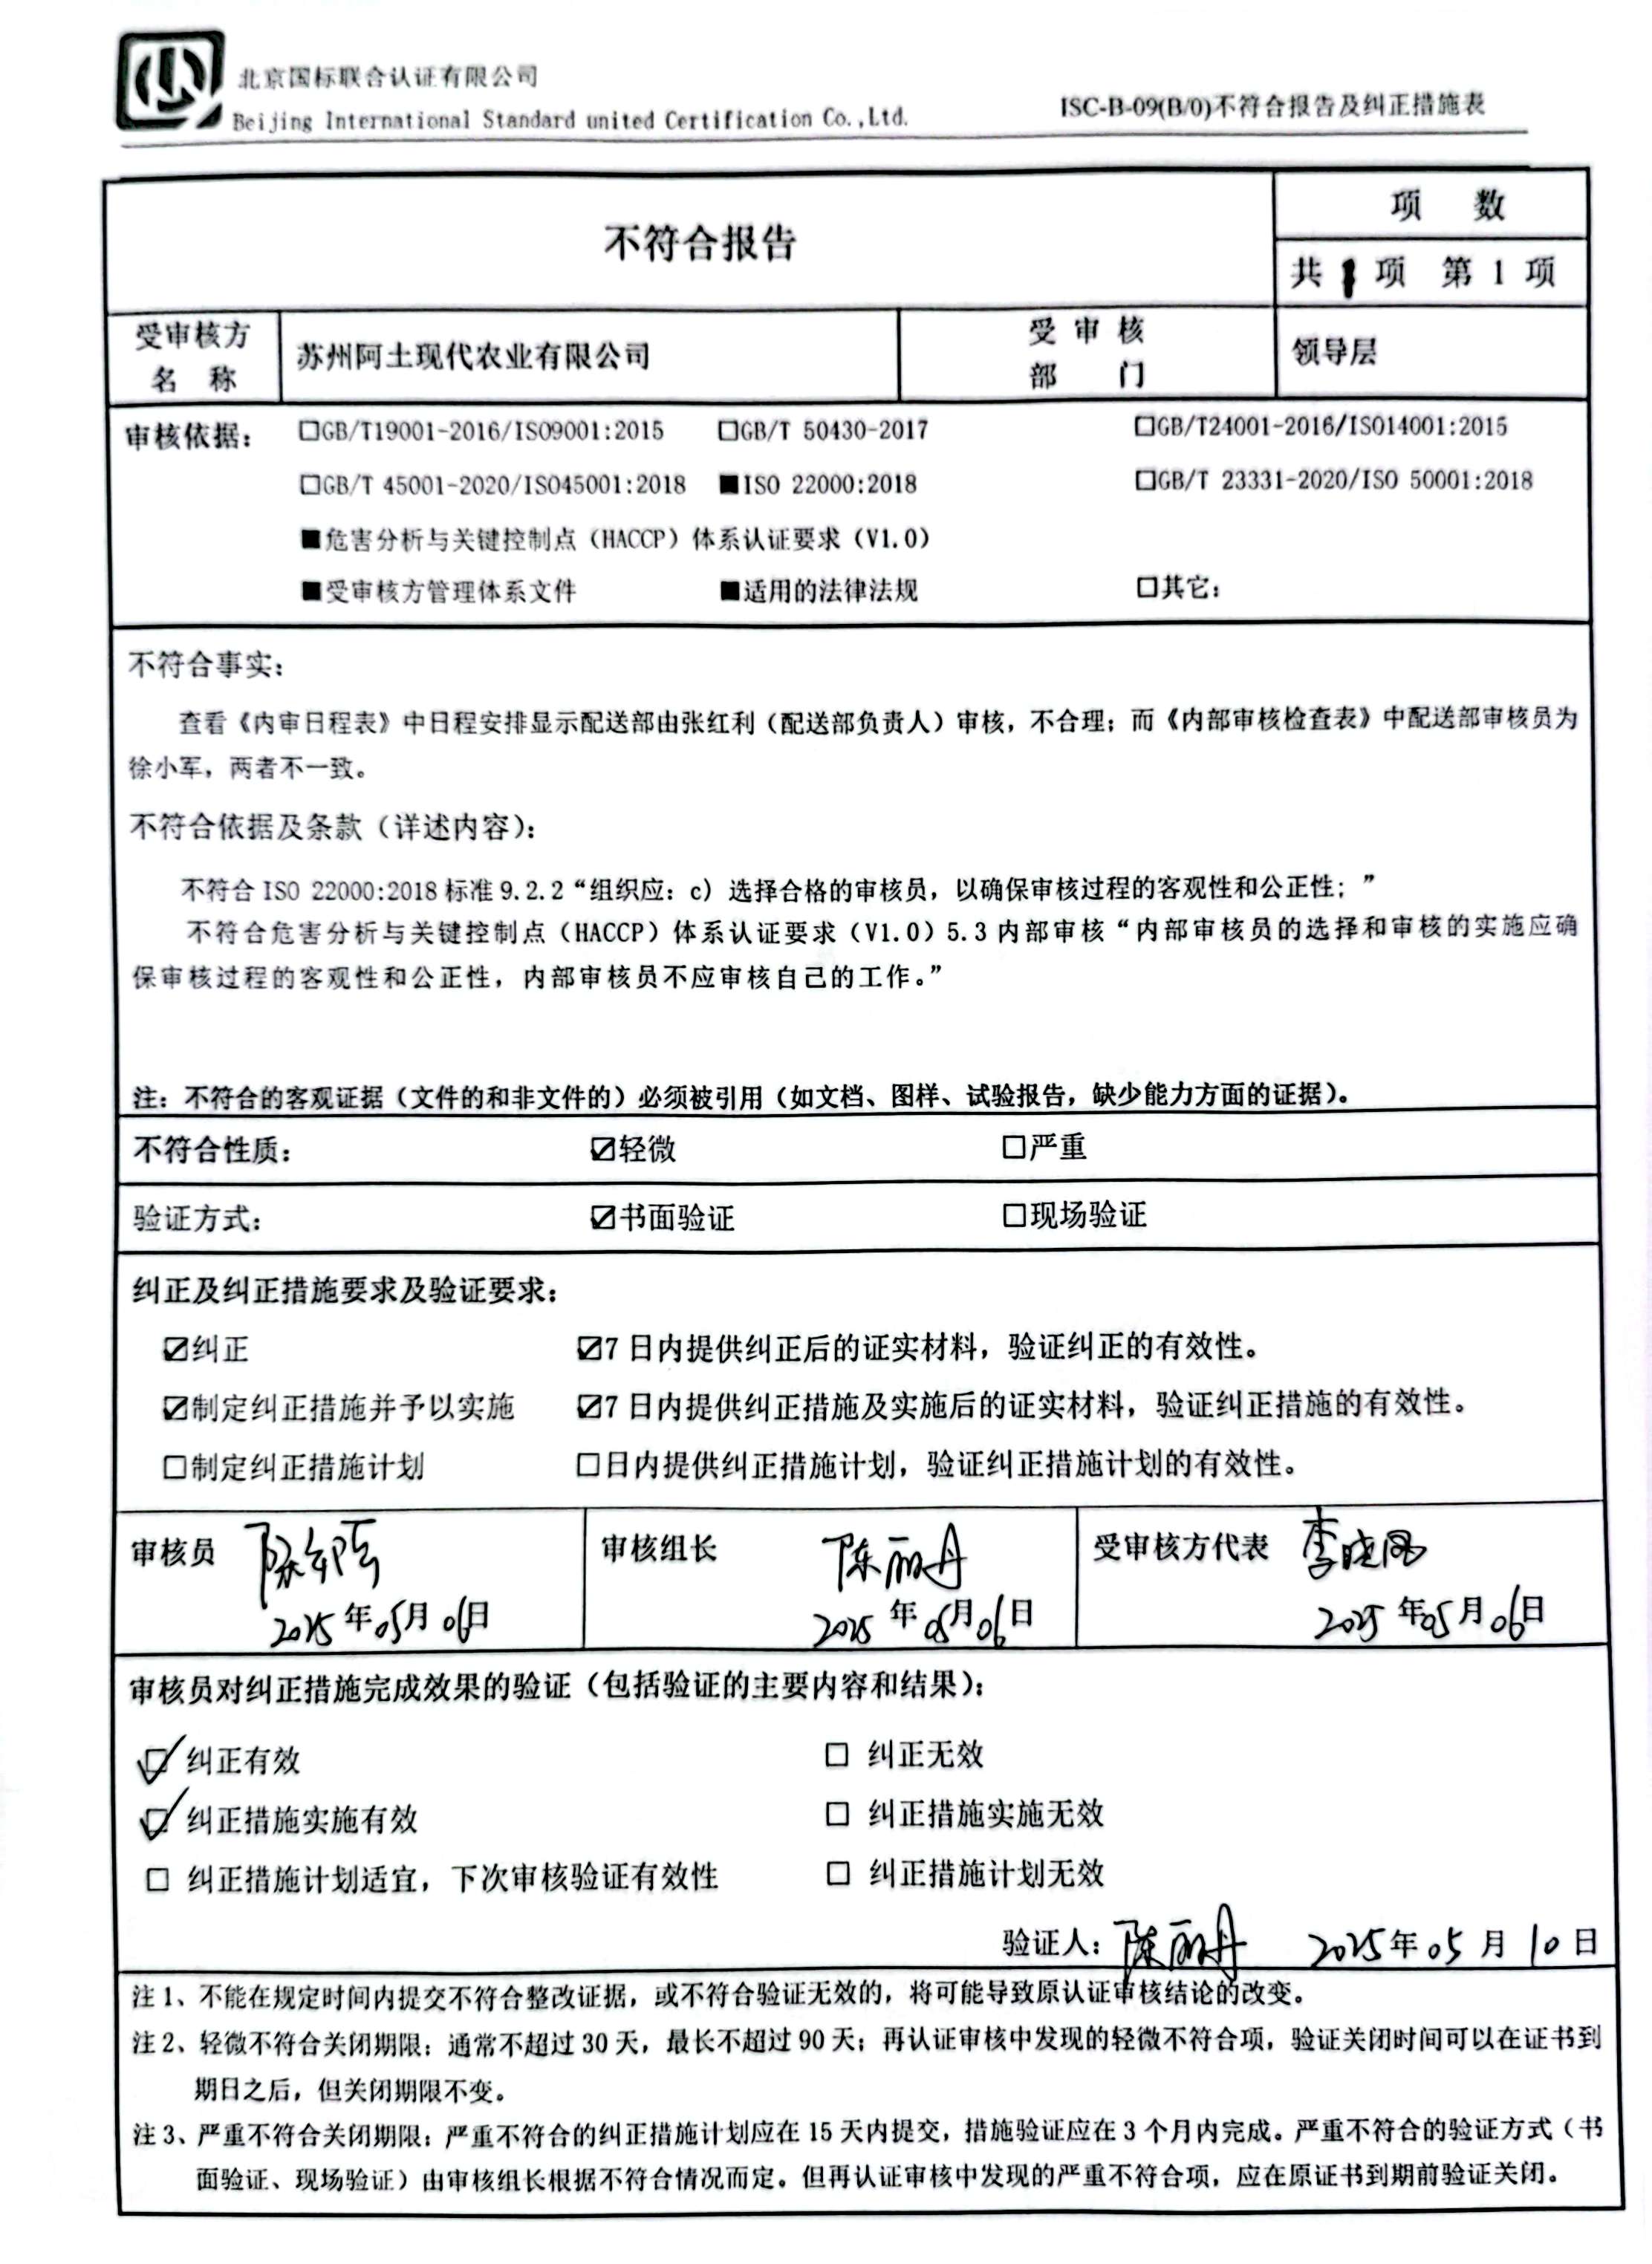 北京国标联合认证有限公司
Beijing International Standard united Certification Co.,Ltd.
ISC-B-09(B/0)不符合报告及纠正措施表
不符合报告
项 数
共 1 项 第 1 项
受审核方
名 称
苏州阿土现代农业有限公司
受 审 核
部 门
领导层
审核依据：
□GB/T19001-2016/ISO9001:2015 □GB/T 50430-2017 □GB/T24001-2016/ISO14001:2015
□GB/T 45001-2020/ISO45001:2018 ■ISO 22000:2018 □GB/T 23331-2020/ISO 50001:2018
■危害分析与关键控制点（HACCP）体系认证要求（V1.0）
■受审核方管理体系文件 ■适用的法律法规 □其它：
不符合事实：
查看《内审日程表》中日程安排显示配送部由张红利（配送部负责人）审核，不合理；而《内部审核检查表》中配送部审核员为
徐小军，两者不一致。
不符合依据及条款（详述内容）：
不符合 ISO 22000:2018 标准 9.2.2 “组织应：c）选择合格的审核员，以确保审核过程的客观性和公正性；”
不符合危害分析与关键控制点（HACCP）体系认证要求（V1.0）5.3 内部审核“内部审核员的选择和审核的实施应确
保审核过程的客观性和公正性，内部审核员不应审核自己的工作。”
注：不符合的客观证据（文件的和非文件的）必须被引用（如文档、图样、试验报告，缺少能力方面的证据）。
不符合性质： ☑轻微 □严重
验证方式： ☑书面验证 □现场验证
纠正及纠正措施要求及验证要求：
☑纠正 ☑7 日内提供纠正后的证实材料，验证纠正的有效性。
☑制定纠正措施并予以实施 ☑7 日内提供纠正措施及实施后的证实材料，验证纠正措施的有效性。
□制定纠正措施计划 □日内提供纠正措施计划，验证纠正措施计划的有效性。
审核员
2025 年 05 月 06 日
审核组长 陈丽丹
2025 年 05 月 06 日
受审核方代表 李晓风
2025 年 05 月 06 日
审核员对纠正措施完成效果的验证（包括验证的主要内容和结果）：
☑ 纠正有效 □ 纠正无效
☑ 纠正措施实施有效 □ 纠正措施实施无效
□ 纠正措施计划适宜，下次审核验证有效性 □ 纠正措施计划无效
验证人：陈丽丹 2025 年 05 月 10 日
注 1、不能在规定时间内提交不符合整改证据，或不符合验证无效的，将可能导致原认证审核结论的改变。
注 2、轻微不符合关闭期限：通常不超过 30 天，最长不超过 90 天；再认证审核中发现的轻微不符合项，验证关闭时间可以在证书到
期日之后，但关闭期限不变。
注 3、严重不符合关闭期限：严重不符合的纠正措施计划应在 15 天内提交，措施验证应在 3 个月内完成。严重不符合的验证方式（书
面验证、现场验证）由审核组长根据不符合情况而定。但再认证审核中发现的严重不符合项，应在原证书到期前验证关闭。